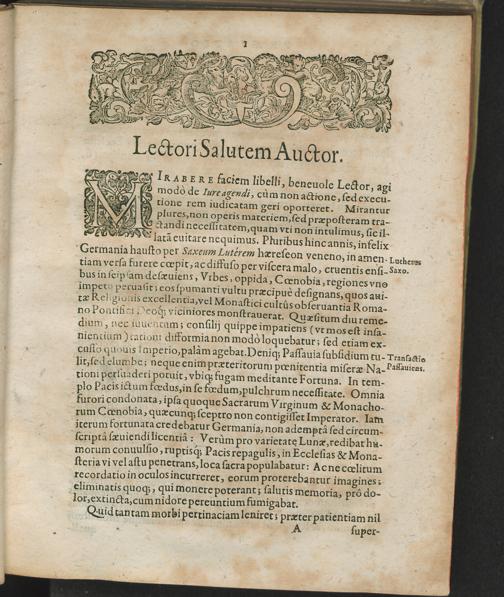 1
Lectori Salutem Auctor.
MIRABERE faciem libelli, beneuole Lector, agi
modò de Iure agendi, cùm non actione, sed execu-
tione rem iudicatam geri oporteret. Mirantur
plures, non operis materiem, sed præposteram tra-
ctandi necessitatem, quam vti non intulimus, sic il-
latā euitare nequimus. Pluribus hinc annis, infelix
Germania hausto per Saxeum Lutèrem hæreseon veneno, in amen-
Lutherus
tiam versa furere cœpit, ac diffuso per viscera malo, cruentis ensi-
Saxo.
bus in seipsam desæuiens, Vrbes, oppida, Cœnobia, regiones vno
impetu peruasit: eos spumanti vultu præcipuè designans, quos aui-
tæ Religionis excellentia, vel Monastici cultûs obseruantia Roma-
no Pontifici, Deoq; viciniores monstrauerat. Quæsitum diu reme-
dium, nec inuentum; consilij quippe impatiens (vt mos est insa-
nientium) rationi difformia non modò loquebatur; sed etiam ex-
cusso quouis Imperio, palàm agebat. Deniq; Passauia subsidium tu-
Transactio
lit, sed elumbe: neque enim præteritorum pœnitentia miseræ Na-
Passauiens.
tioni persuaderi potuit, vbiq; fugam meditante Fortuna. In tem-
plo Pacis ictum fœdus, in se fœdum, pulchrum necessitate. Omnia
furori condonata; ipsa quoque Sacrarum Virginum & Monacho-
rum Cœnobia, quæcunq; sceptro non contigisset Imperator. Iam
iterum fortunata credebatur Germania, non ademptâ sed circum-
scriptâ sæuiendi licentiâ: Verùm pro varietate Lunæ, redibat hu-
morum conuulsio, ruptisq; Pacis repagulis, in Ecclesias & Mona-
steria vi vel astu penetrans, loca sacra populabatur: Ac ne cœlitum
recordatio in oculos incurreret, eorum proterebantur imagines;
eliminatis quoq;, qui monere poterant; salutis memoria, prô do-
lor, extincta, cum nidore pereuntium fumigabat.
Quid tantam morbi pertinaciam leniret; præter patientiam nil
A
super-